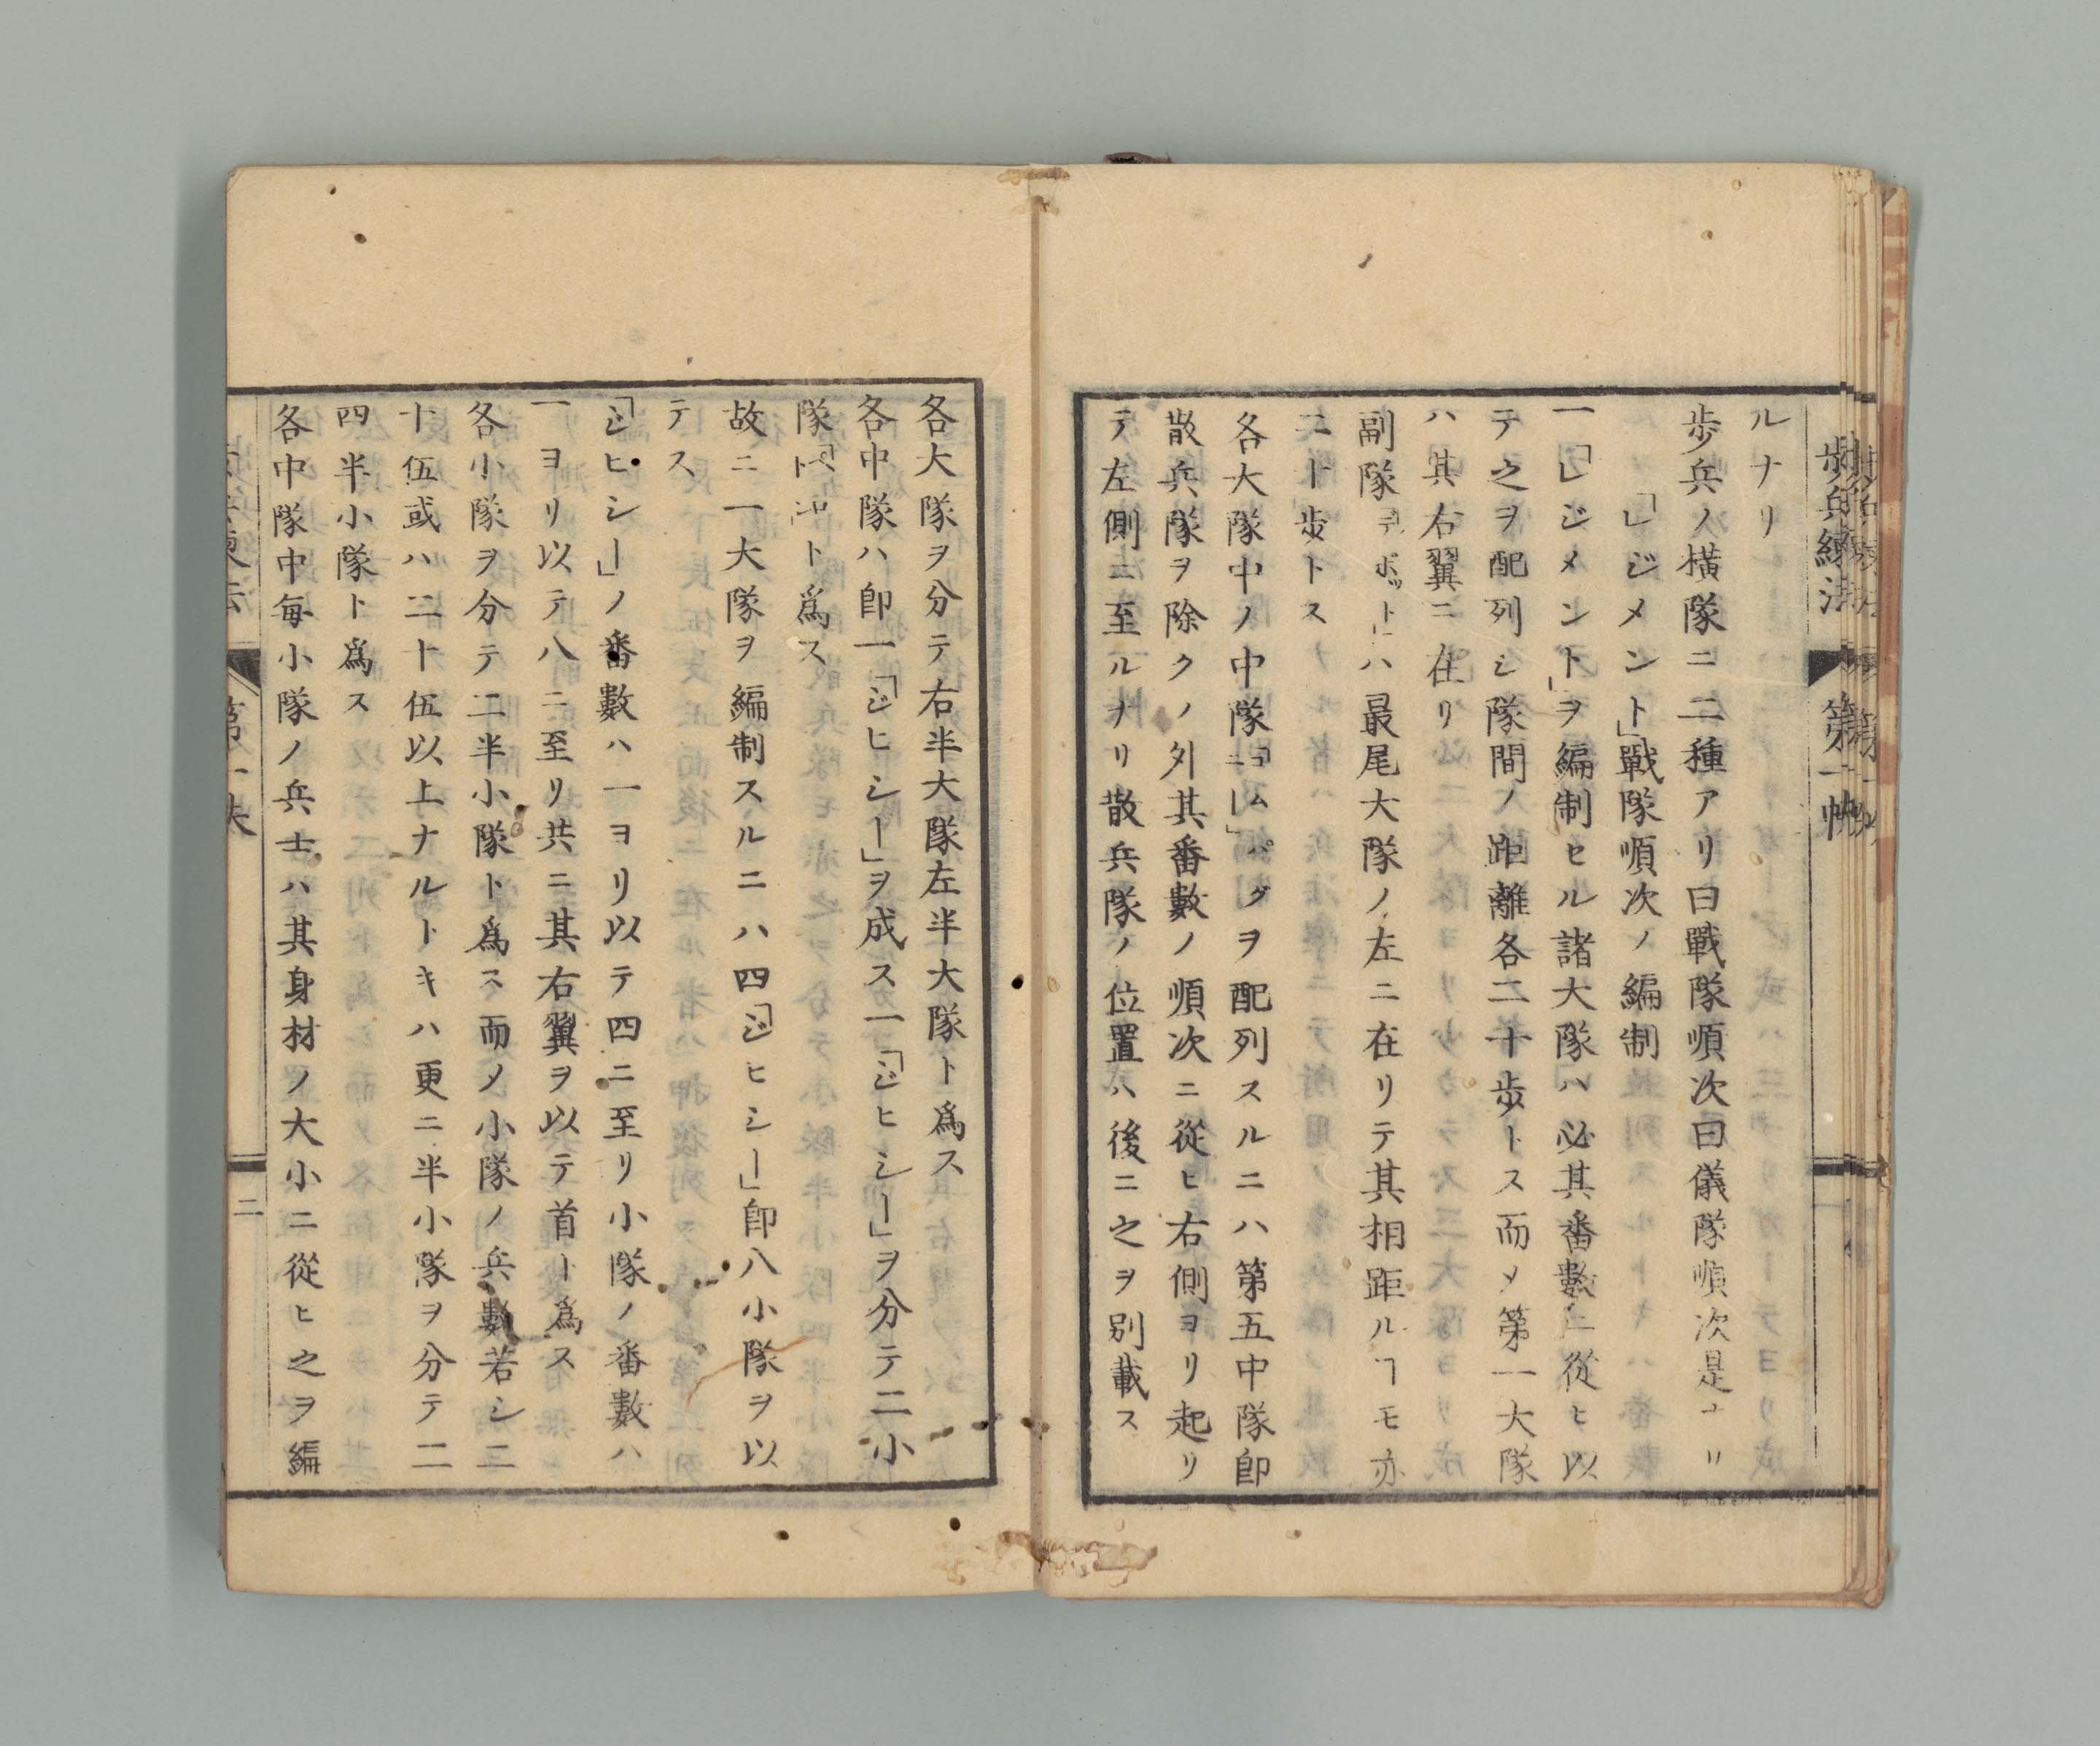 歩兵練法 第一帙
ルナリ
歩兵ノ横隊ニ二種アリ曰戰隊順次曰儀隊順次是ナリ
「レジメント」戰隊順次ノ編制
一「レジメント」ヲ編制セル諸大隊ハ必其番數ニ從ヒ以
テ之ヲ配列シ隊間ノ距離各二十歩トス而メ第一大隊
ハ其右翼ニ在リ
副隊「デポット」ハ最尾大隊ノ左ニ在リテ其相距ルヿモ亦
二十歩トス
各大隊中ノ中隊「コムパグニー」ヲ配列スルニハ第五中隊卽
散兵隊ヲ除クノ外其番數ノ順次ニ從ヒ右側ヨリ起リ
テ左側ニ至ルヲリ散兵隊ノ位置ハ後ニ之ヲ別載ス
各大隊ヲ分テ右半大隊左半大隊ト爲ス
各中隊ハ卽一「ジヒシー」ヲ成ス一「ジヒシー」ヲ分テ二小
隊ト爲ス
故ニ一大隊ヲ編制スルニハ四「ジヒシー」卽八小隊ヲ以
テス
「ジヒシー」ノ番數ハ一ヨリ以テ四ニ至リ小隊ノ番數ハ
一ヨリ以テ八ニ至リ共ニ其右翼ヲ以テ首ト爲ス
各小隊ヲ分テ二半小隊ト爲ス而メ小隊ノ兵數若シ二
十伍或ハ二十伍以上ナルトキハ更ニ半小隊ヲ分テ二
四半小隊ト爲ス
各中隊中毎小隊ノ兵士ハ其身材ノ大小ニ從ヒ之ヲ編
二